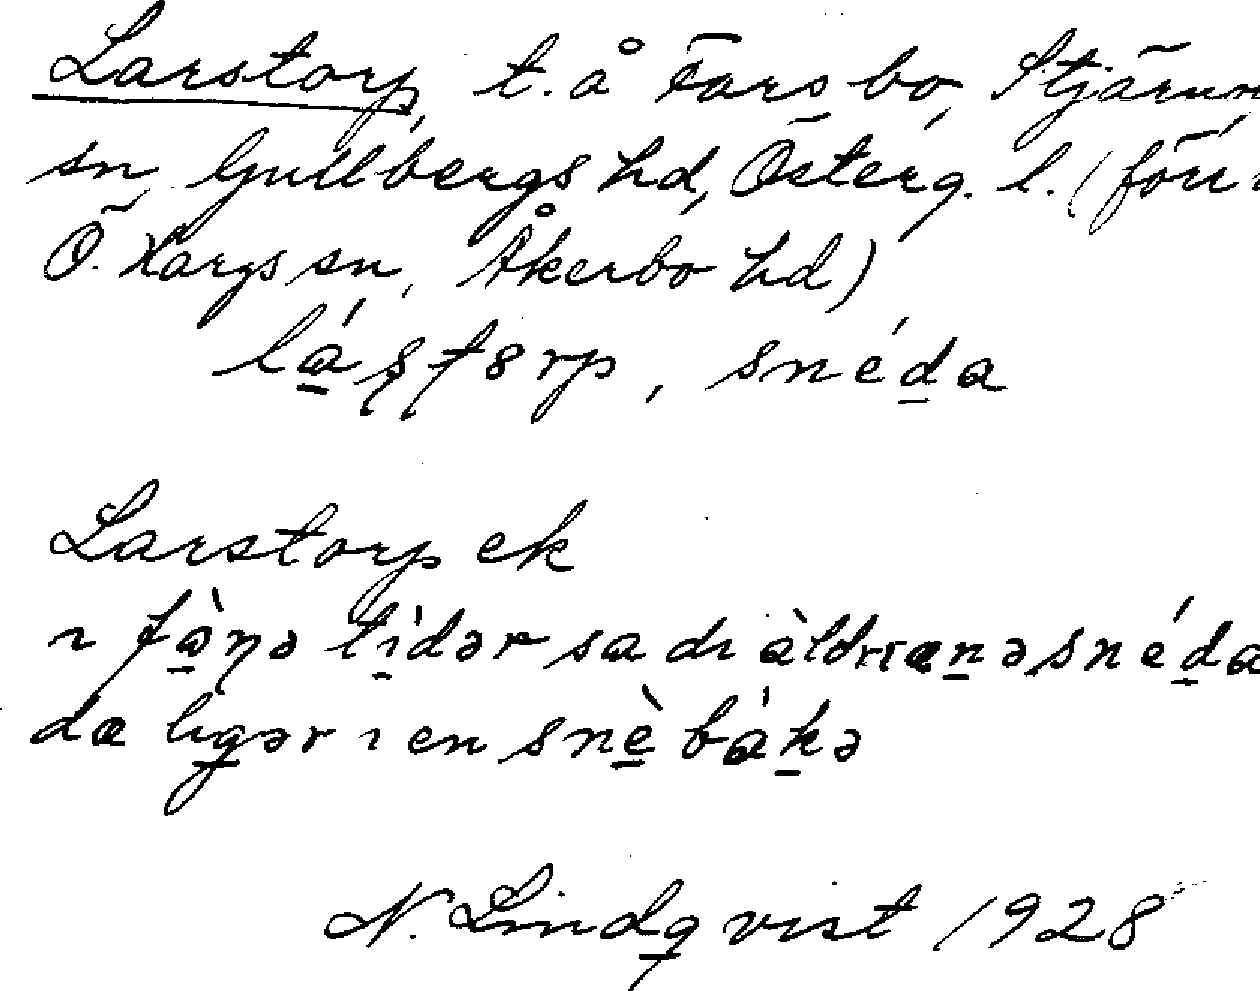 Larstorp, t. å Farsbo, Stjärnorps
sn, Gullbergs hd, Österg. l. (förr
Ö. Hargs sn, Åkerbo hd)
láşţ8rp, snéda
Larstorp ek
ı fà̱ŋə tìdər sa dı àldrıænə snéda
dæ lıgər ı en snè bàkə
N. Lindqvist 1928